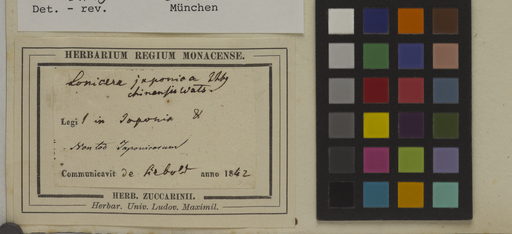 Det. - rev.
München
HERBARIUM REGIUM MONACENSE.
Lonicera japonica Thbg
chinensis Wats.
Legi in Japonia &
Japonicorum
Communicavit de Siebold anno 1842
HERB. ZUCCARINII.
Herbar. Univ. Ludov. Maximil.